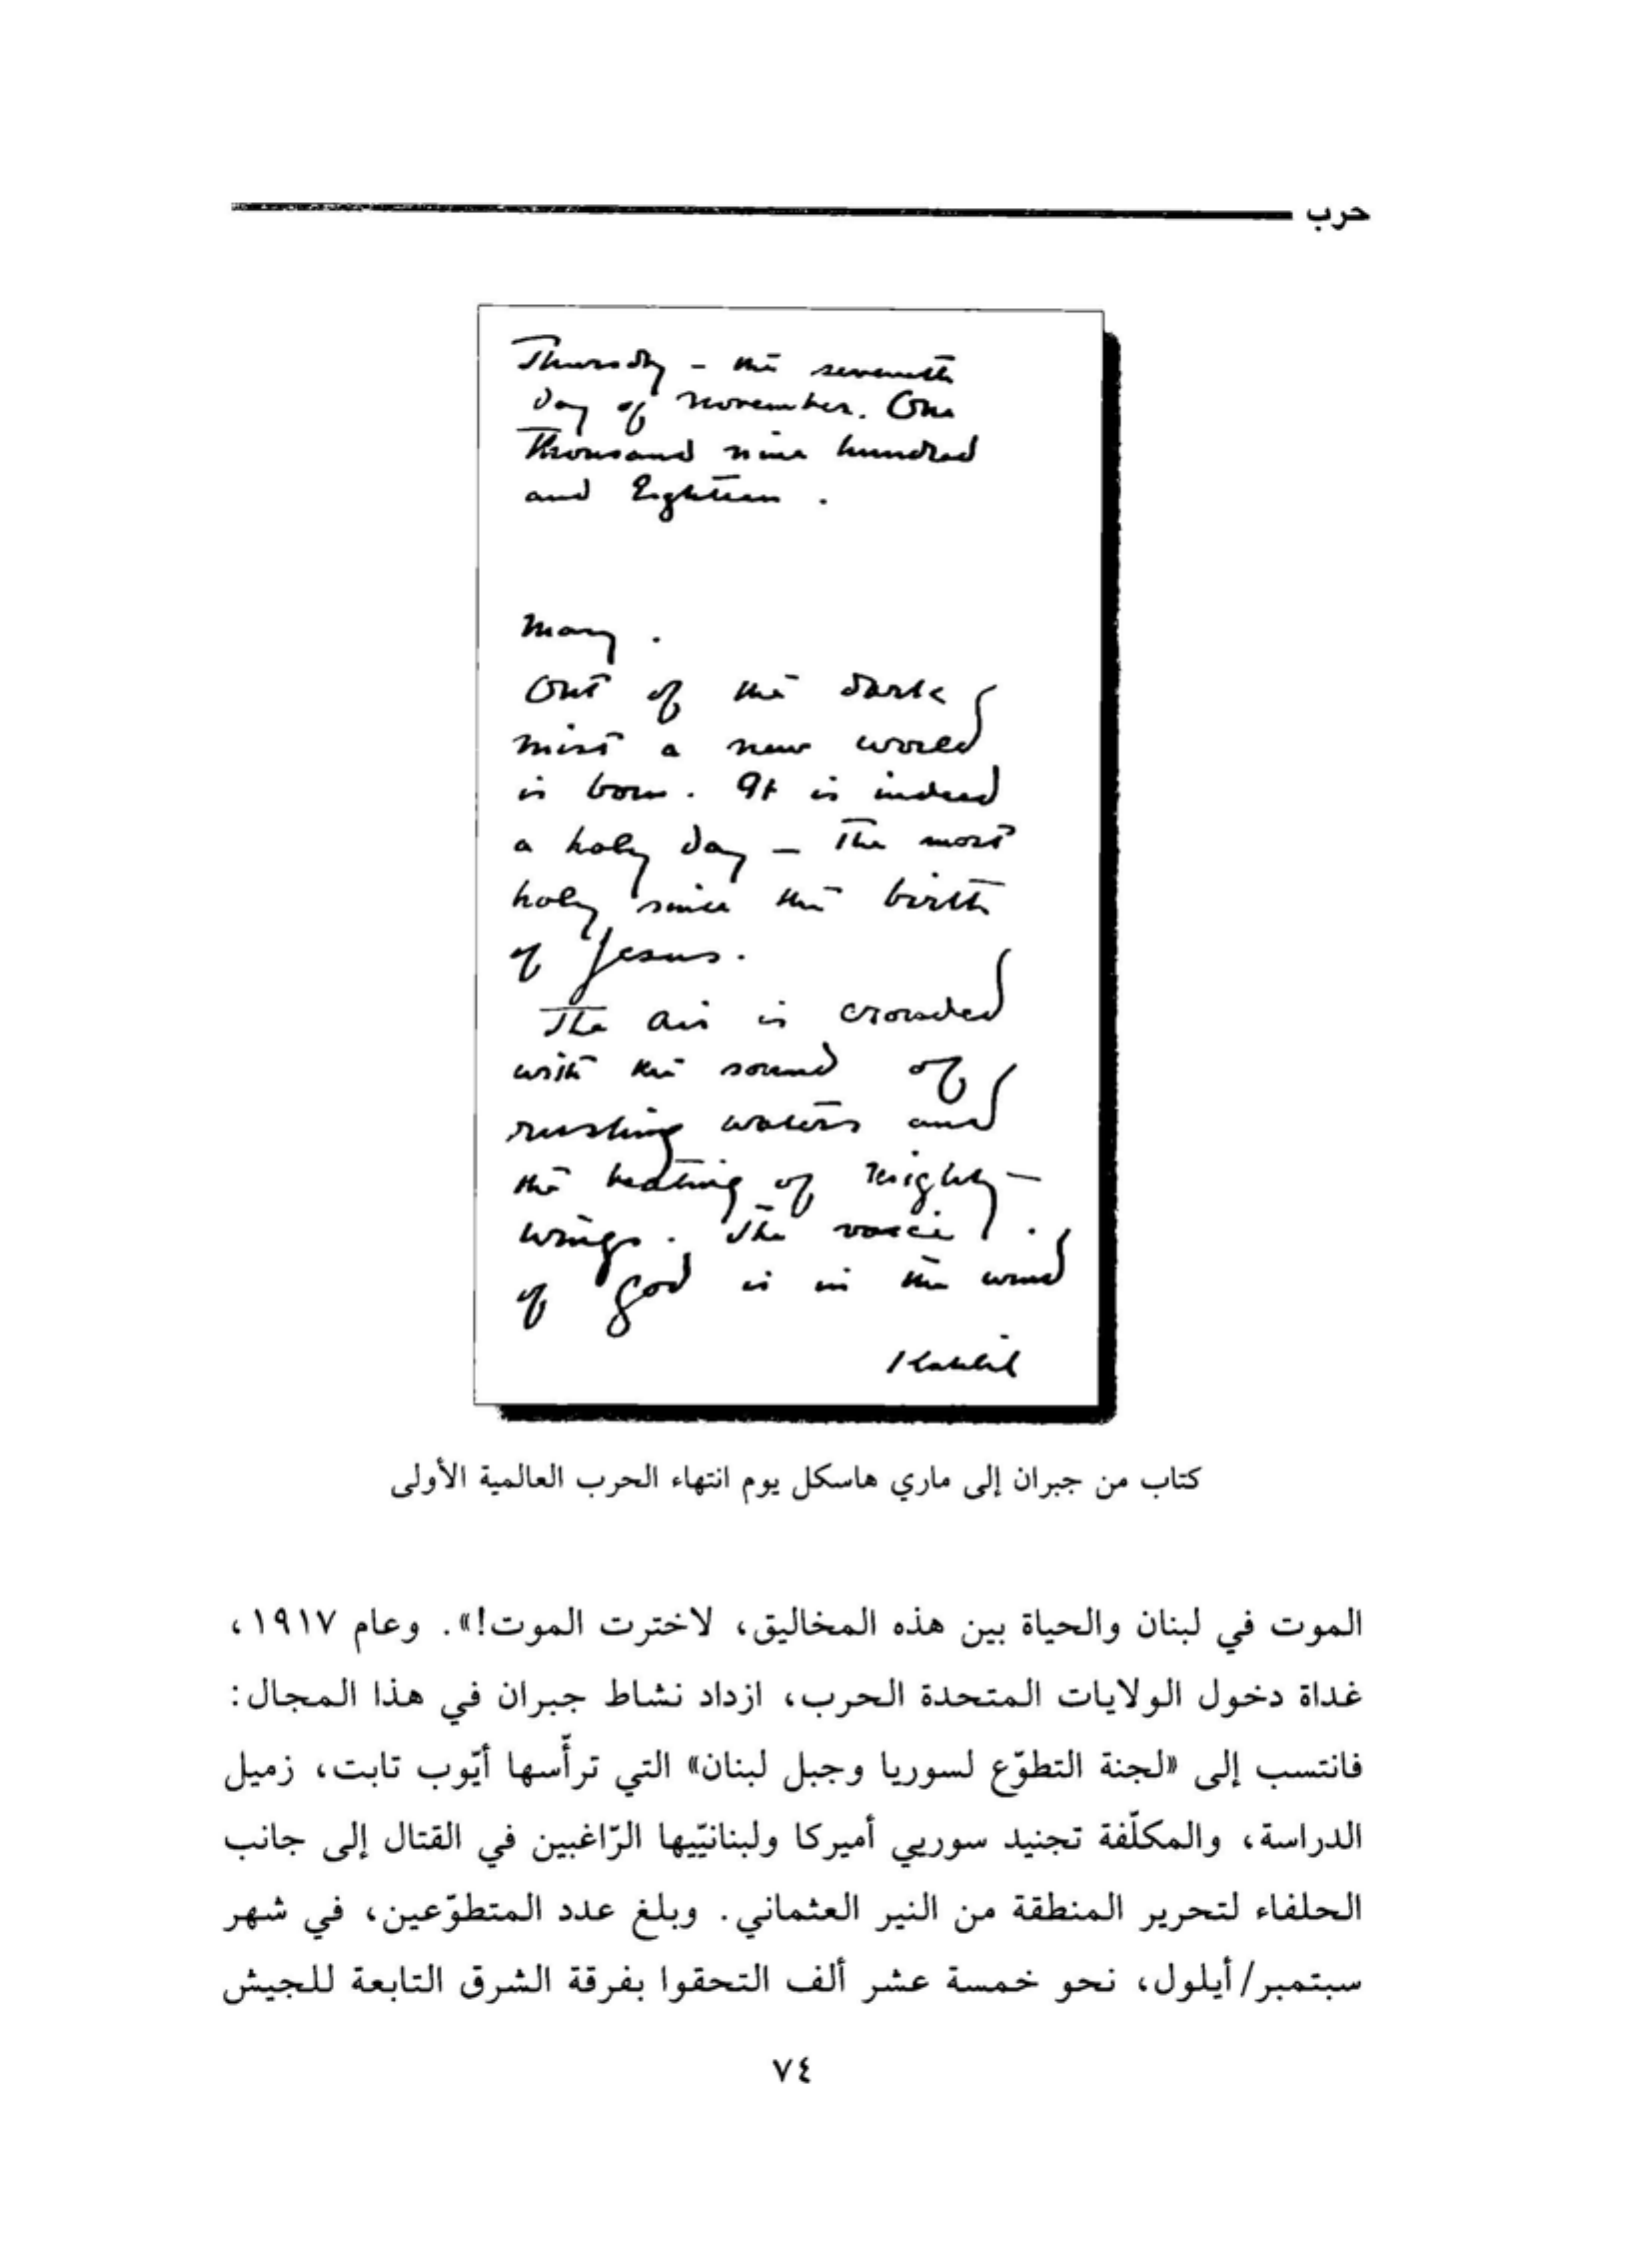 حرب
Thursday - the seventh
day of november. One
Thousand nine hundred
and Eighteen.
Mary.
Out of the dark
mist a new world
is born. It is indeed
a holy day - The most
holy since the birth
of Jesus.
The air is crowded
with the sound of
rushing waters and
the beating of mighty
wings. The voice
of God is in the wind
Kahlil
كتاب من جبران إلى ماري هاسكل يوم انتهاء الحرب العالمية الأولى
الموت في لبنان والحياة بين هذه المخاليق، لاخترت الموت!». وعام ١٩١٧،
غداة دخول الولايات المتحدة الحرب، ازداد نشاط جبران في هذا المجال:
فانتسب إلى «لجنة التطوّع لسوريا وجبل لبنان» التي ترأّسها أيّوب تابت، زميل
الدراسة، والمكلّفة تجنيد سوريي أميركا ولبنانيّيها الرّاغبين في القتال إلى جانب
الحلفاء لتحرير المنطقة من النير العثماني. وبلغ عدد المتطوّعين، في شهر
سبتمبر/أيلول، نحو خمسة عشر ألف التحقوا بفرقة الشرق التابعة للجيش
٧٤